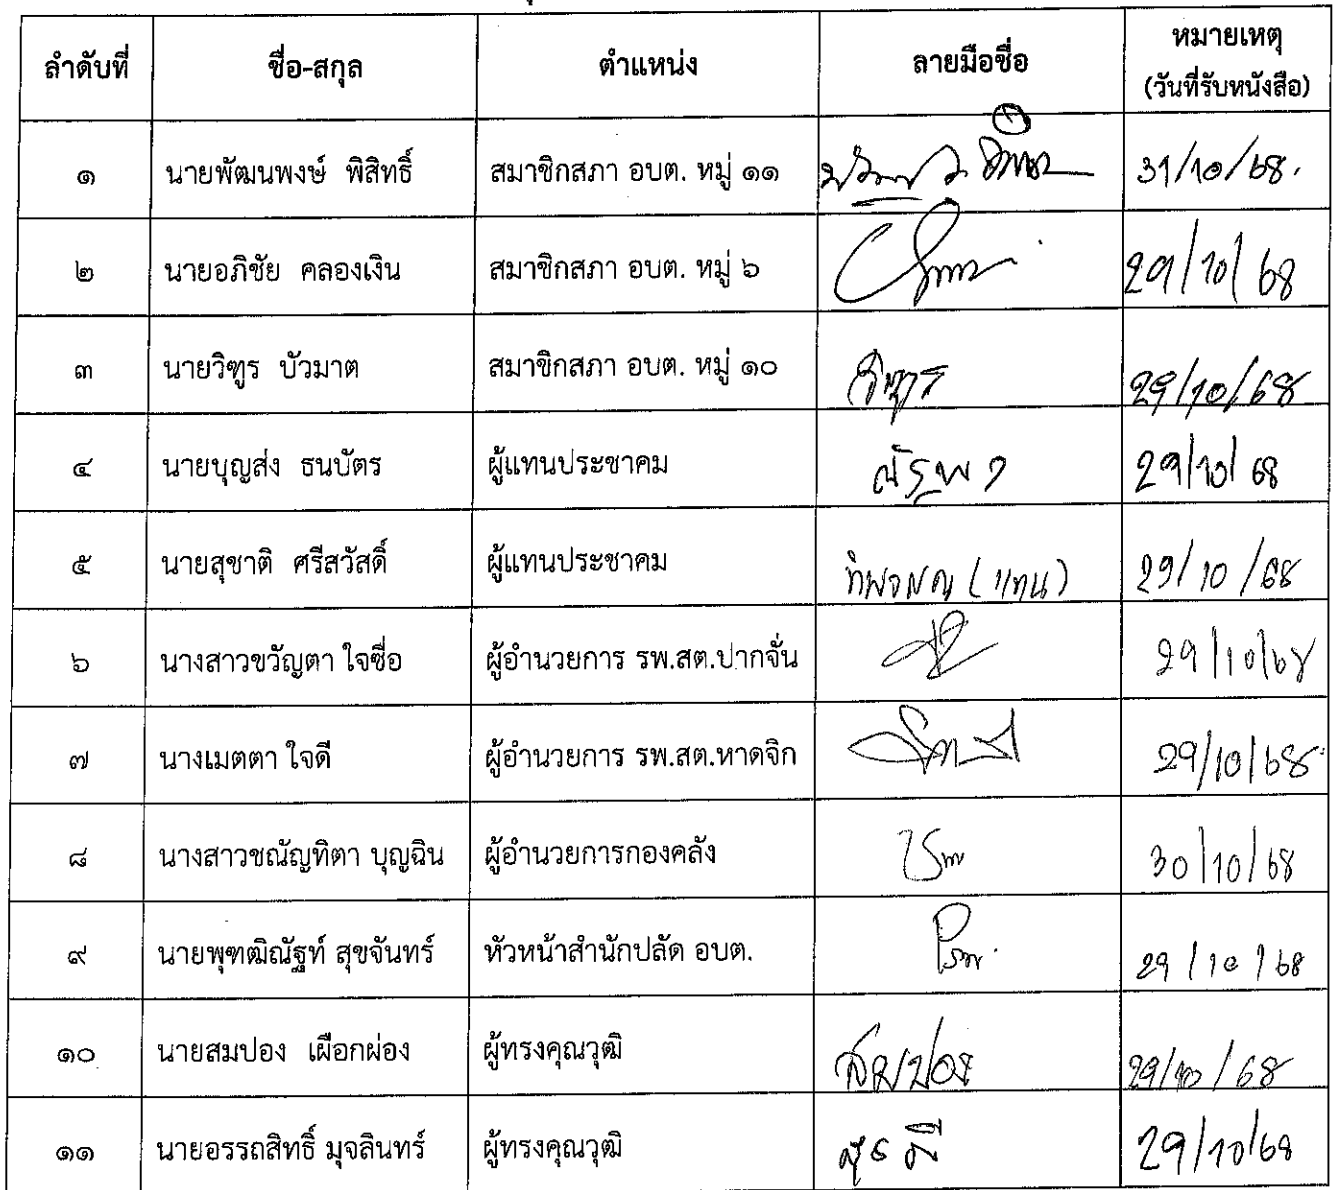 ลำดับที่ ชื่อ-สกุล ตำแหน่ง ลายมือชื่อ หมายเหตุ
(วันที่รับหนังสือ)
๑ นายพัฒนพงษ์ พิสิทธิ์ สมาชิกสภา อบต. หมู่ ๑๑ 31/10/68.
๒ นายอภิชัย คลองเงิน สมาชิกสภา อบต. หมู่ ๖ 29/10/68
๓ นายวิฑูร บัวมาต สมาชิกสภา อบต. หมู่ ๑๐ วิฑูร 29/10/68
๔ นายบุญส่ง ธนบัตร ผู้แทนประชาคม 29/10/68
๕ นายสุชาติ ศรีสวัสดิ์ ผู้แทนประชาคม (แทน) 29/10/68
๖ นางสาวขวัญตา ใจซื่อ ผู้อำนวยการ รพ.สต.ปากจั่น 29/10/68
๗ นางเมตตา ใจดี ผู้อำนวยการ รพ.สต.หาดจิก 29/10/68
๘ นางสาวชณัญทิตา บุญฉิน ผู้อำนวยการกองคลัง 30/10/68
๙ นายพุฑฒิณัฐท์ สุขจันทร์ หัวหน้าสำนักปลัด อบต. 29/10/68
๑๐ นายสมปอง เผือกผ่อง ผู้ทรงคุณวุฒิ สมปอง 29/10/68
๑๑ นายอรรถสิทธิ์ มุจลินทร์ ผู้ทรงคุณวุฒิ 29/10/68